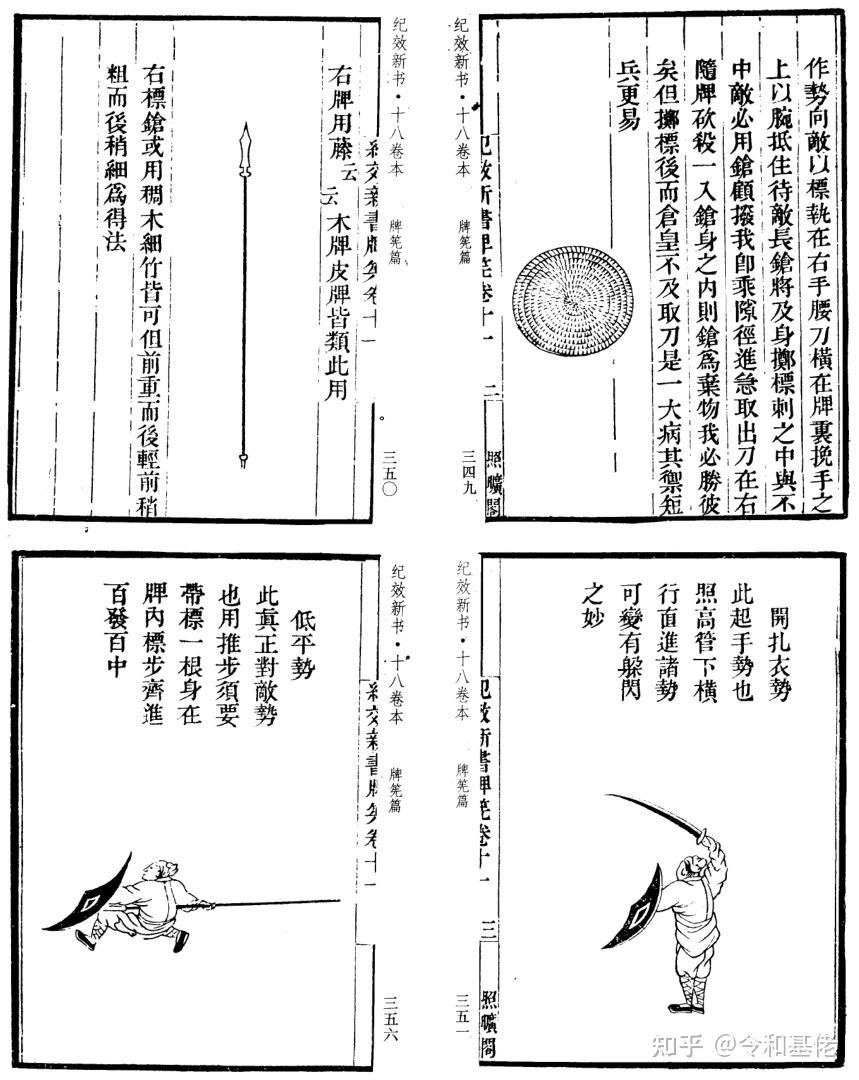 作勢向敵以標執在右手腰刀橫在牌裏挽手之
上以腕抵住待敵長鎗將及身擲標刺之中與不
中敵必用鎗顧撥我卽乘隙徑進急取出刀在右
隨牌砍殺一入鎗身之內則鎗爲棄物我必勝彼
矣但擲標後而倉皇不及取刀是一大病其禦短
兵更易
紀效新書牌筅卷十一 二 照曠閣
纪效新书·十八卷本 牌筅篇 三四九
纪效新书·十八卷本 牌筅篇 三五〇
紀效新書牌筅卷十一
右牌用藤云云木牌皮牌皆類此用
右標鎗或用稠木細竹皆可但前重而後輕前稍
粗而後稍細爲得法
開扎衣勢
此起手勢也
照高管下橫
行直進諸勢
可變有躲閃
之妙
紀效新書牌筅卷十一 三 照曠閣
纪效新书·十八卷本 牌筅篇 三五一
纪效新书·十八卷本 牌筅篇 三五六
紀效新書牌筅卷十一
低平勢
此眞正對敵勢
也用推步須要
帶標一根身在
牌內標步齊進
百發百中
知乎 @令和基佬